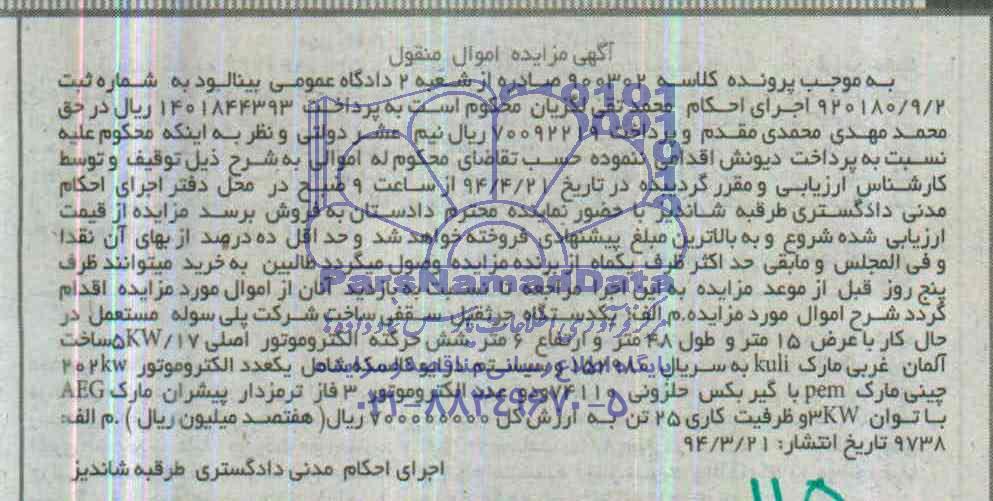 آگهی مزایده اموال منقول
به موجب پرونده کلاسه ۹۰۰۳۰۲ صادره از شعبه ۲ دادگاه عمومی بینالود به شماره ثبت
۹۲۰۱۸۰/۹/۲ اجرای احکام محمد تقی لگزیان محکوم است به پرداخت ۱۴۰۱۸۴۴۳۹۳ ریال در حق
محمد مهدی محمدی مقدم و پرداخت ۷۰۰۹۲۲۱۹ ریال نیم عشر دولتی و نظر به اینکه محکوم علیه
نسبت به پرداخت دیونش اقدامی ننموده حسب تقاضای محکوم له اموالی به شرح ذیل توقیف و توسط
کارشناس ارزیابی و مقرر گردیده در تاریخ ۹۴/۴/۲۱ از ساعت ۹ صبح در محل دفتر اجرای احکام
مدنی دادگستری طرقبه شاندیز با حضور نماینده محترم دادستان به فروش برسد مزایده از قیمت
ارزیابی شده شروع و به بالاترین مبلغ پیشنهادی فروخته خواهد شد و حد اقل ده درصد از بهای آن نقدا
و فی المجلس و مابقی حد اکثر ظرف یکماه از برنده مزایده وصول میگردد طالبین به خرید میتوانند ظرف
پنج روز قبل از موعد مزایده به این اجرا مراجعه تا نسبت به بازدید آنان از اموال مورد مزایده اقدام
گردد شرح اموال مورد مزایده.م الف: یکدستگاه جرثقیل سقفی ساخت شرکت پلی سوله مستعمل در
حال کار با عرض ۱۵ متر و طول ۴۸ متر و ارتفاع ۶ متر شش حرکته الکتروموتور اصلی ۵KW/۱۷ ساخت
آلمان غربی مارک kuli به سریال و سیستم شامل یکعدد الکتروموتور ۲۰۲kw
چینی مارک pem با گیر بکس حلزونی و دو عدد الکتروموتور ۳ فاز ترمزدار پیشران مارک AEG
با توان ۳KW و ظرفیت کاری ۲۵ تن به ارزش کل ۷۰۰۰۰۰۰۰۰ ریال( هفتصد میلیون ریال ) .م الف:
۹۷۳۸ تاریخ انتشار: ۹۴/۳/۲۱
اجرای احکام مدنی دادگستری طرقبه شاندیز
ParsNamadData
۰۲۱-۸۸۳۴۹۶۷۰-۵